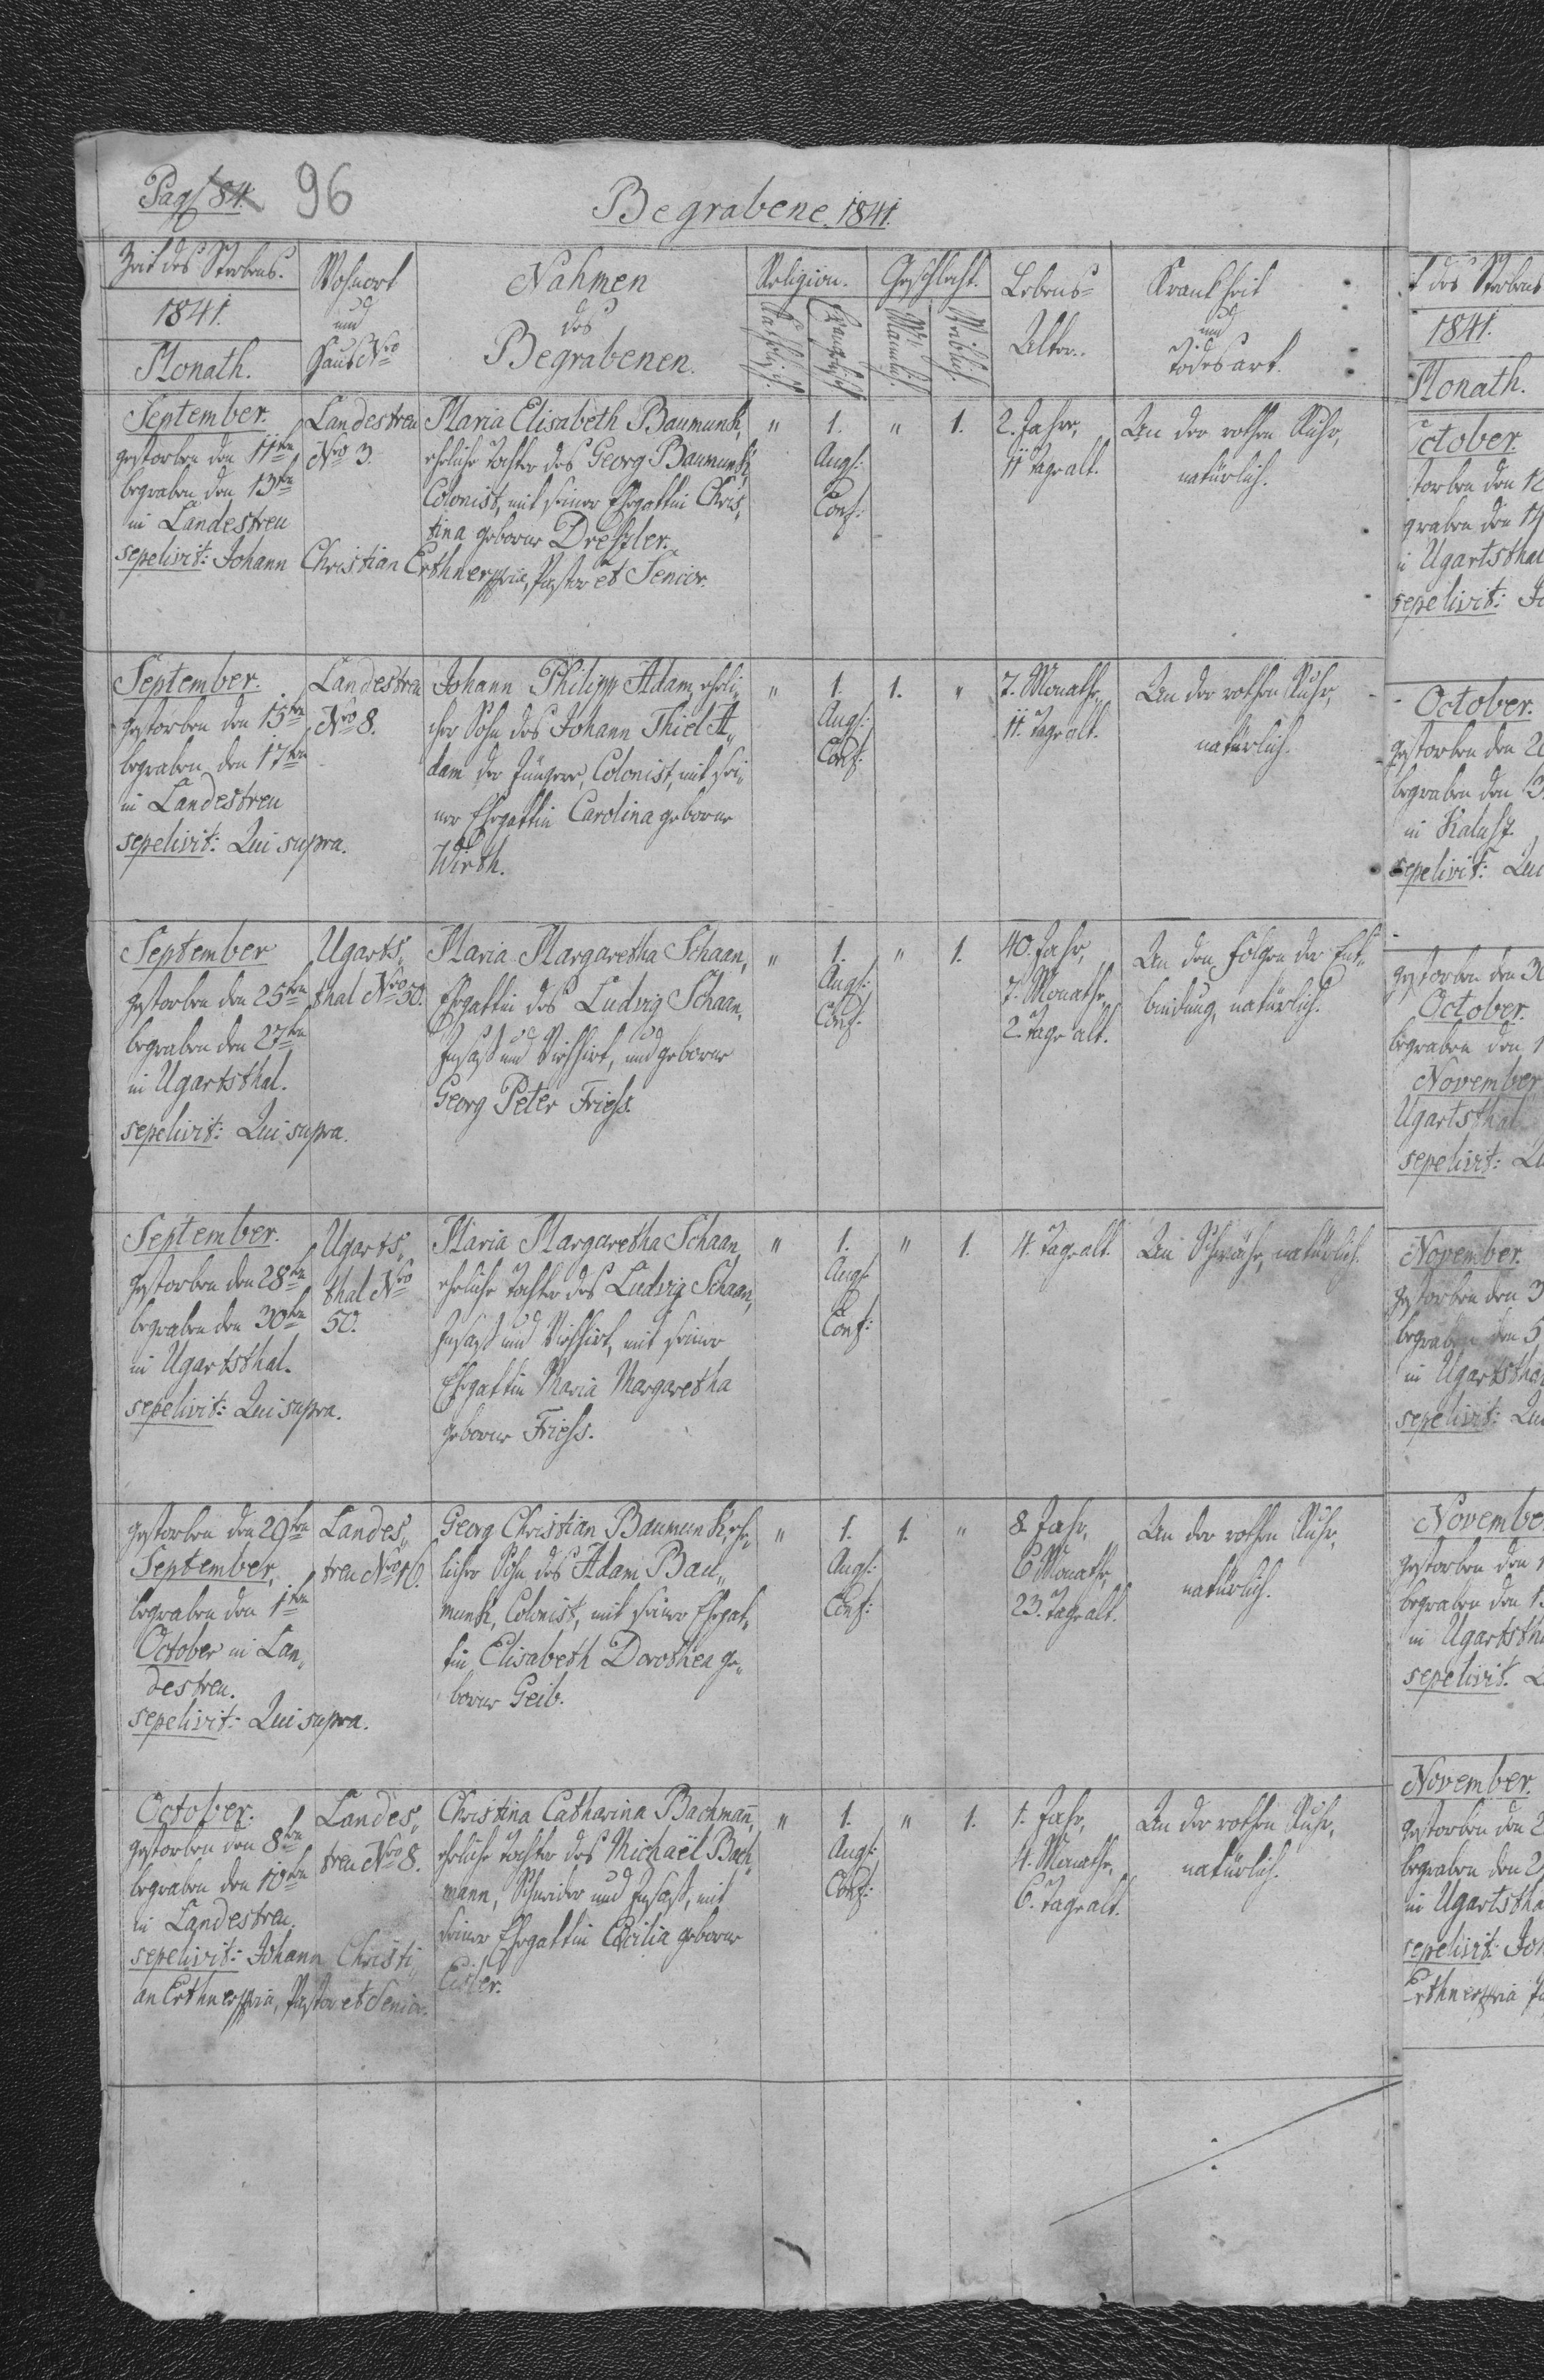 Pag. 84. 96
Begrabene. 1841.
Zeit des Sterbens.
1841.
Monath.
Wohnort
und
Haus Nro
Nahmen
des
Begrabenen.
Religion.
Katholisch.
Evangelisch
Geschlecht.
Männlich.
Weiblich.
Lebens-
Alter.
Krankheit
und
Todesart.
September.
gestorben den 11ten
begraben den 13ten
in Landestreu
sepelivit: Johann Christian Erthner mpria, Pastor et Senior.
Landestreu
Nro 3.
Maria Elisabeth Baumunk,
eheliche Tochter des Georg Baumunk,
Colonist, mit seiner Ehegattin Chris„
tina geborne Dreßler.
" 1. " 1.
Augs:
Conf:
2. Jahre,
11 Tage alt.
An der rothen Ruhr,
natürlich.
September.
gestorben den 15ten
begraben den 17ten
in Landestreu
sepelivit: Qui supra.
Landestreu
Nro 8.
Johann Philipp Adam, eheli„
cher Sohn des Johann Thiel A„
dam der Jüngere, Colonist, mit sei„
ner Ehegattin Carolina geborne
Wirth.
" 1. 1. "
Augs:
Conf:
7. Monathe,
11. Tage alt.
An der rothen Ruhr,
natürlich.
September
gestorben den 25ten
begraben den 27ten
in Ugartsthal.
sepelivit: Qui supra.
Ugarts„
thal Nro 50.
Maria Margaretha Schaan,
Ehegattin des Ludvig Schaan,
Insaß und Viehhirt, und geborne
Georg Peter Frieß.
" 1. " 1.
Augs:
Conf:
40. Jahr,
7. Monathe,
2. Tage alt.
An den Folgen der Ent„
bindung, natürlich.
September.
gestorben den 28ten
begraben den 30ten
in Ugartsthal.
sepelivit: Qui supra.
Ugarts„
thal Nro
50.
Maria Margaretha Schaan,
eheliche Tochter des Ludvig Schaan,
Insaß und Viehhirt, mit seiner
Ehegattin Maria Margaretha
geborne Frieß.
" 1. " 1.
Augs:
Conf:
4. Tage alt.
An Schwäche, natürlich.
gestorben den 29ten
September,
begraben den 1ten
October in Lan„
destreu.
sepelivit: Qui supra.
Landes„
treu Nro 16.
Georg Christian Baumunk, ehe„
licher Sohn des Adam Bau„
munk, Colonist, mit seiner Ehegat„
tin Elisabeth Dorothea ge„
borne Geib.
" 1. 1. "
Augs:
Conf:
8. Jahr,
6 Monathe,
23. Tage alt.
An der rothen Ruhr,
natürlich.
October.
gestorben den 8ten
begraben den 10ten
in Landestreu.
sepelivit: Johann Christi„
an Erthner mpria, Pastor et Senior.
Landes„
treu Nro 8.
Christina Catharina Bachmann,
eheliche Tochter des Michaël Bach„
mann, Schneider und Insaß, mit
seiner Ehegattin Cäcilia geborne
Eisler.
" 1. " 1.
Augs:
Conf:
1. Jahr,
4. Monathe,
6. Tage alt.
An der rothen Ruhr,
natürlich.
it des Sterbens
1841.
Monath.
October.
torben den 12
graben den 14
n Ugartsthal
sepelivit: Jo
October.
gestorben den 2
begraben den 3
in Kalusz
sepelivit: Qui
gestorben den 30
October.
begraben den 1
November
Ugartsthal
sepelivit: Qu
November.
gestorben den 3
begraben den 5
in Ugartsthal
sepelivit: Qui
November
gestorben den 1
begraben den 1
in Ugartsth
sepelivit. Q
November.
gestorben den 2
begraben den 2
in Ugartstha
sepelivit: Joh
Erthner mpria Pa